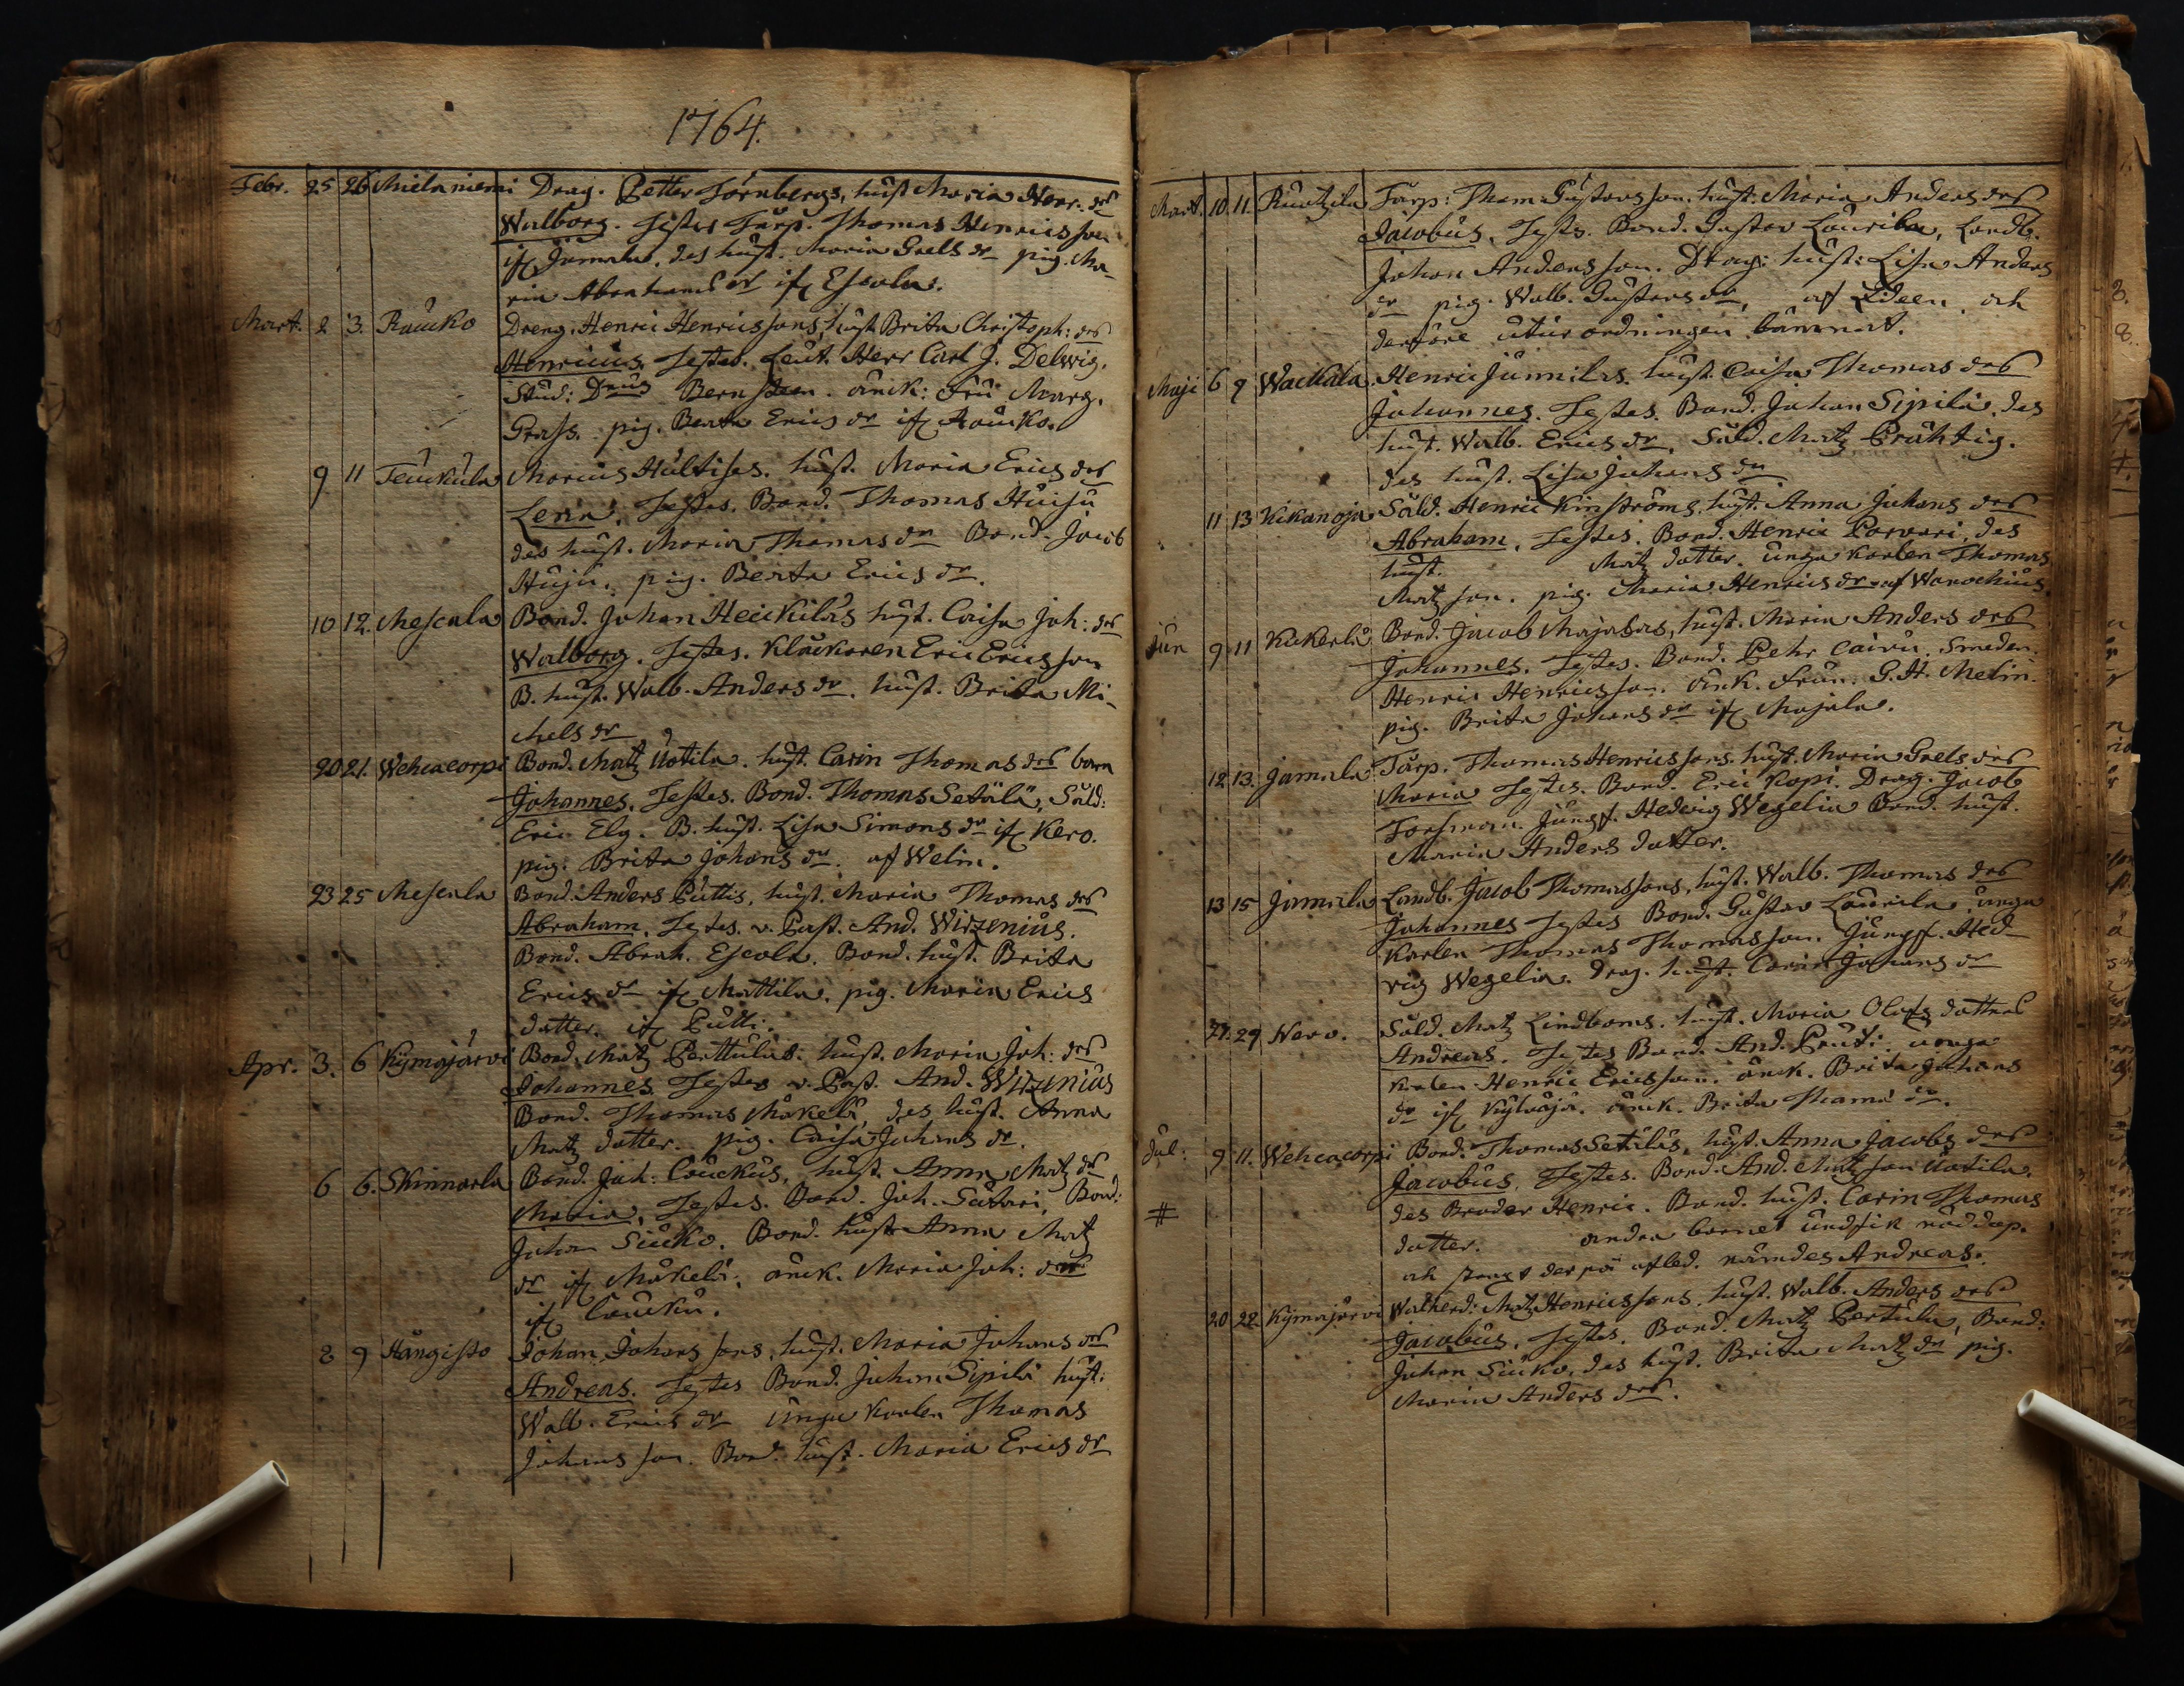 1764.
Febr. 25 26 Mielaniemi Drag. Petter Törnbergs, hust. Maria Henr. drs
Walborg. Testes Torp. Thomas Henricsson
if Jämala. des hust. Maria Grels dr pig. Ma-
ria Abrahams dr if Escola.
Mart. 2 3. Raucko Dreng. Henric Henricssons, hust. Brita Christoph: drs
Henricus. Testes. Leut. Herr Carl J. Delwig.
Stud: Dnus Bernsteen. änck: Fru Marg.
Grass. pig. Beata Erics dr if Raucko.
9 11 Teuckula Marcus Hultises. hust. Maria Erics drs
Lena. Testes. Bond. Thomas Huisu
des hust. Maria Thomas dr Bond. Jacob
Huju. pig. Beata Erics dr.
10 12. Mescala Bond. Johan Heickiläs hust. Caisa Joh: drs
Walborg. Testes. Klåckaren Eric Ericsson
B. hust. Walb. Anders dr. hust. Brita Mi-
chels dr
20 21. Wehcacorpi Bond. Matz Uotila. hust. Carin Thomas drs barn
Johannes. Testes. Bond. Thomas Setälä, Sold:
Eric Elg. B. hust. Lisa Simons dr if Kero.
pig. Brita Johans dr. af Welin.
23 25 Mescala Bond. Anders Puttis, hust. Maria Thomas drs
Abraham. Testes. v. Past. And. Wirzenius.
Bond. Abrah. Escola. Bond. hust. Brita
Erics dr if Mattila. pig. Maria Erics
datter if Putti.
Apr. 3. 6 Kymäjärvi Bond. Matz Perttulas. hust. Maria Joh: drs
Johannes. Testes v. Past. And. Wirzenius
Bond. Thomas Mäkelä, des hust. Anna
Matz datter. pig. Caisa Johans dr.
6 6. Skinnarla Bond. Joh: Couckus, hust. Anna Matz dr
Maria. Testes. Bond. Joh. Sutari, Bond:
Johan Siuko. Bond. hust. Anna Matz
dr if Mäkelä. änck. Maria Joh: dr
if Coucku.
8 9 Hångisto Johan Johanssons, hust. Maria Johans drs
Andreas. Testes Bond. Johan Sipilä hust.
Walb. Erics dr unga Karlen Thomas
Johansson. Bond. hust. Maria Erics dr
Mart. 10. 11. Ruotzila Torp: Thom. Gustavsson. hust. Maria Anders drs
Jacobus. Testes. Bond. Gustav Laurila, Landb.
Johan Andersson. Drag: hust: Lisa Anders
dr pig. Walb. Gustavs dr, af Lideen och
derföre utur ordningen kommit.
Maji 6 9 Wackala Henric Junnilas. hust. Caisa Thomas drs
Johannes. Testes. Bond. Johan Sipilä, des
hust. Walb. Erics dr. Sold. Matz Präktig.
des hust. Lisa Johans dr
11 13 Kikanoja Sold. Henric Kinströms, hust. Anna Johans drs
Abraham. Testes. Bond. Henric Porvari, des
hust. Matz datter. unga Karlen Thomas
Matzson. pig. Maria Henrics dr af Wanochius.
Jun 9 11 Kukerla Bond. Jacob Majalas, hust. Maria Anders drs
Johannes. Testes. Bond. Pehr Cairu. Smeden
Henric Henricsson. änk. Frun. G. H. Melin.
pig. Brita Johans dr if Majala.
12. 13. Jamala Torp. Thomas Henricssons. hust. Maria Grels drs
Maria Testes. Bond. Eric Kopi. Drag. Jacob
Forsman. Jungf. Hedwig Wegelia Bond. hust.
Maria Anders datter.
13 15 Jamala Landb. Jacob Thomassons, hust. Walb. Thomas drs
Johannes Testes Bond. Gustav Laurila, unga
Karlen Thomas Thomasson. Jungf. Hed-
vig Wegelia. Drag. hust. Carin Johans dr
27. 29 Nero. Sold. Matz Lindboms. hust. Maria Olofs datters
Andreas. Testes Bond. And. Prusi. unga
Karlen Henric Ericsson. änck. Brita Johans
dr if Kylväjä. änck. Brita Thoma dr.
Jul: 9 11. Wehcacorpi Bond. Thomas Setäläs, hust. Anna Jacobs drs
Jacobus. Testes. Bond. And. Matzson Uotila.
# des Broder Henric. Bond. hust. Carin Thomas
datter. andra barnet undfik nöddop.
och strax derpå afled. nämdes Andreas.
20 22. Kymajärvi Walherd: Matz Henricssons, hust. Walb. Anders drs
Jacobus. Testes. Bond. Matz Pertula, Bond:
Johan Siuko, des hust. Brita Matz dr pig.
Maria Anders drs.